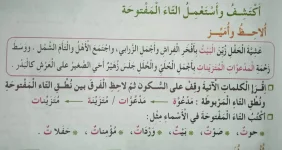 أَكْتَشِفُ وَأَسْتَعْمِلُ التَّاءَ الْمَفْتُوحَةَ
أُلَاحِظُ وَأُمَيِّزُ
عَشِيَّةَ الْحَفْلِ زُيِّنَ الْبَيْتُ بِأَفْخَرِ الْفِرَاشِ وَأَجْمَلِ الزَّرَابِي، وَاجْتَمَعَ الْأَهْلُ وَالْتَأَمَ الشَّمْلُ. وَوَسْطَ
زَحْمَةِ الْمَدْعُوَّاتِ الْمُتَزَيِّنَاتِ بِأَجْمَلِ الْحُلِيِّ وَالْحُلَلِ جَلَسَ زُهَيْرٌ أَخِي الصَّغِيرُ عَلَى الْعَرْشِ كَالْبَدْرِ.
أَقْرَأُ الْكَلِمَاتِ الْآتِيَةَ وَقِفْ عَلَى السُّكُونِ ثُمَّ لَاحِظِ الْفَرْقَ بَيْنَ نُطْقِ التَّاءِ الْمَفْتُوحَةِ
وَنُطْقِ التَّاءِ الْمَرْبُوطَةِ: مَدْعُوَّةٌ مَدْعُوَّاتٌ / مُتَزَيِّنَةٌ مُتَزَيِّنَاتٌ
أَكْتُبُ التَّاءَ الْمَفْتُوحَةَ فِي الْأَسْمَاءِ مِثْلَ:
حُوتٌ، صَوْتٌ، بَيْتٌ، وَرْدَاتٌ، مُؤْمِنَاتٌ، حَفَلَاتٌ.